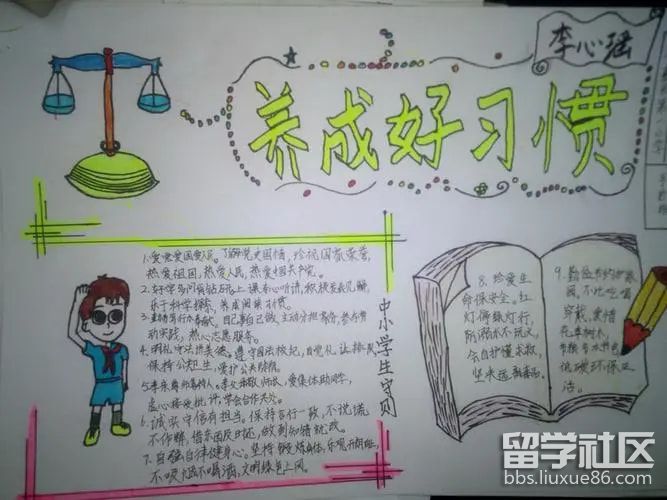 李心瑶
养成好习惯
中小学生守则
1.爱党爱国爱人民。了解党史国情,珍视国家荣誉,
热爱祖国,热爱人民,热爱中国共产党。
2.好学多问肯钻研。上课专心听讲,积极发表见解,
乐于科学探索,养成阅读习惯。
3.勤劳笃行乐奉献。自己事自己做,主动分担家务,参与劳
动实践,热心志愿服务。
4.明礼守法讲美德。遵守国法校纪,自觉礼让排队,
保持公共卫生,爱护公共财物。
5.孝亲尊师善待人。孝父母敬师长,爱集体助同学,
虚心接受批评,学会合作共处。
6.诚实守信有担当。保持言行一致,不说谎
不作弊,借东西及时还,做到知错就改。
7.自强自律健身心。坚持锻炼身体,乐观开朗向上,
不吸烟不喝酒,文明绿色上网。
8.珍爱生
命保安全。红
灯停绿灯行,
防溺水不玩火,
会自护懂求救,
坚决远离毒品。
9.勤俭节约护家
园。不比吃喝
穿戴,爱惜
花草树木,
节粮节水节电
低碳环保生
活。
留学社区
bbs.liuxue86.com